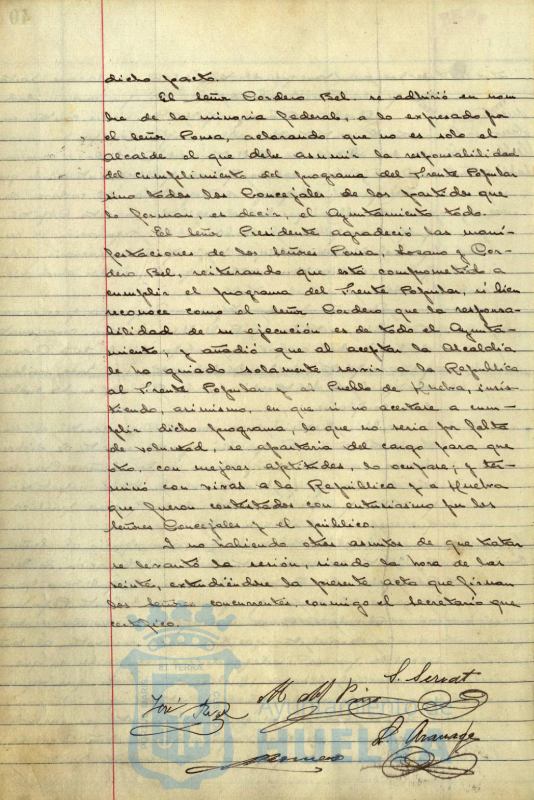 dicho pacto.
El Señor Cordero Bel. se adhirió en nom
bre de la minoria federal, a lo expresado por
el Señor Ponsa, aclarando que no es solo el
Alcalde el que debe asumir la responsabilidad
del cumplimiento del programa del Frente Popular
sino todos los Concejales de los partidos que
lo forman, es decir, el Ayuntamiento todo.
El Señor Presidente agradeció las mani-
festaciones de los Señores Ponsa, Lozano y Cor-
dero Bel, reiterando que está comprometido a
cumplir el programa del Frente Popular, si bien
reconoce como el Señor Cordero que la responsa-
bilidad de su ejecución es de todo el Ayunta-
miento, y añadió que al aceptar la Alcaldia
le ha guiado solamente servir a la República
al Frente Popular y al Pueblo de Huelva, insis-
tiendo, asimismo, en que si no acertase a cum-
plir dicho programa, lo que no seria por falta
de voluntad, se apartaria del cargo para que
otro, con mejores aptitudes, lo ocupase; y ter-
minó con vivas a la República y a Huelva
que fueron contestados con entusiasmo por los
Señores Concejales y el público.
I no habiendo otros asuntos de que tratar
se levantó la sesión, siendo la hora de las
veinte, extendiéndose la presente acta que firman
los Señores concurrentes, conmigo el Secretario que
certifico.
S. Servat
José
Ayuntamiento
HUELVA